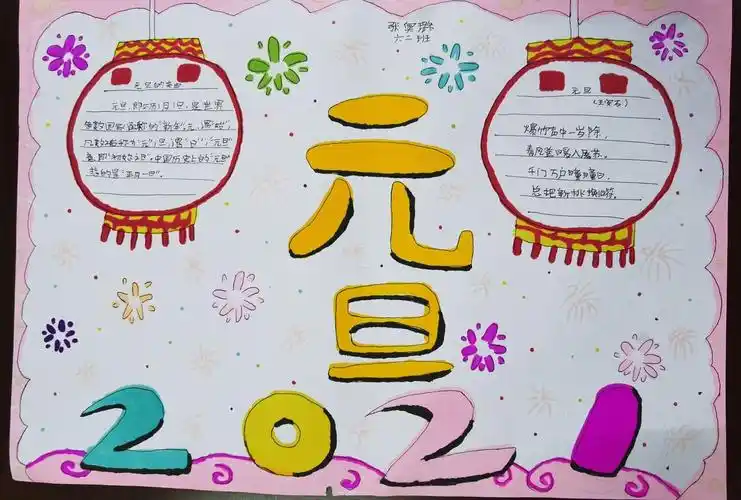 六二班
元旦的来由
元旦，即公历1月1日，是世界
多数国家通称的“新年”。元，谓“始”，
凡数之始称为“元”；旦，谓“日”；“元旦”
意即“初始之日”。中国历史上的“元旦”
指的是“正月一日”。
元旦
(王安石)
爆竹声中一岁除，
春风送暖入屠苏。
千门万户曈曈日，
总把新桃换旧符。
元
旦
2021